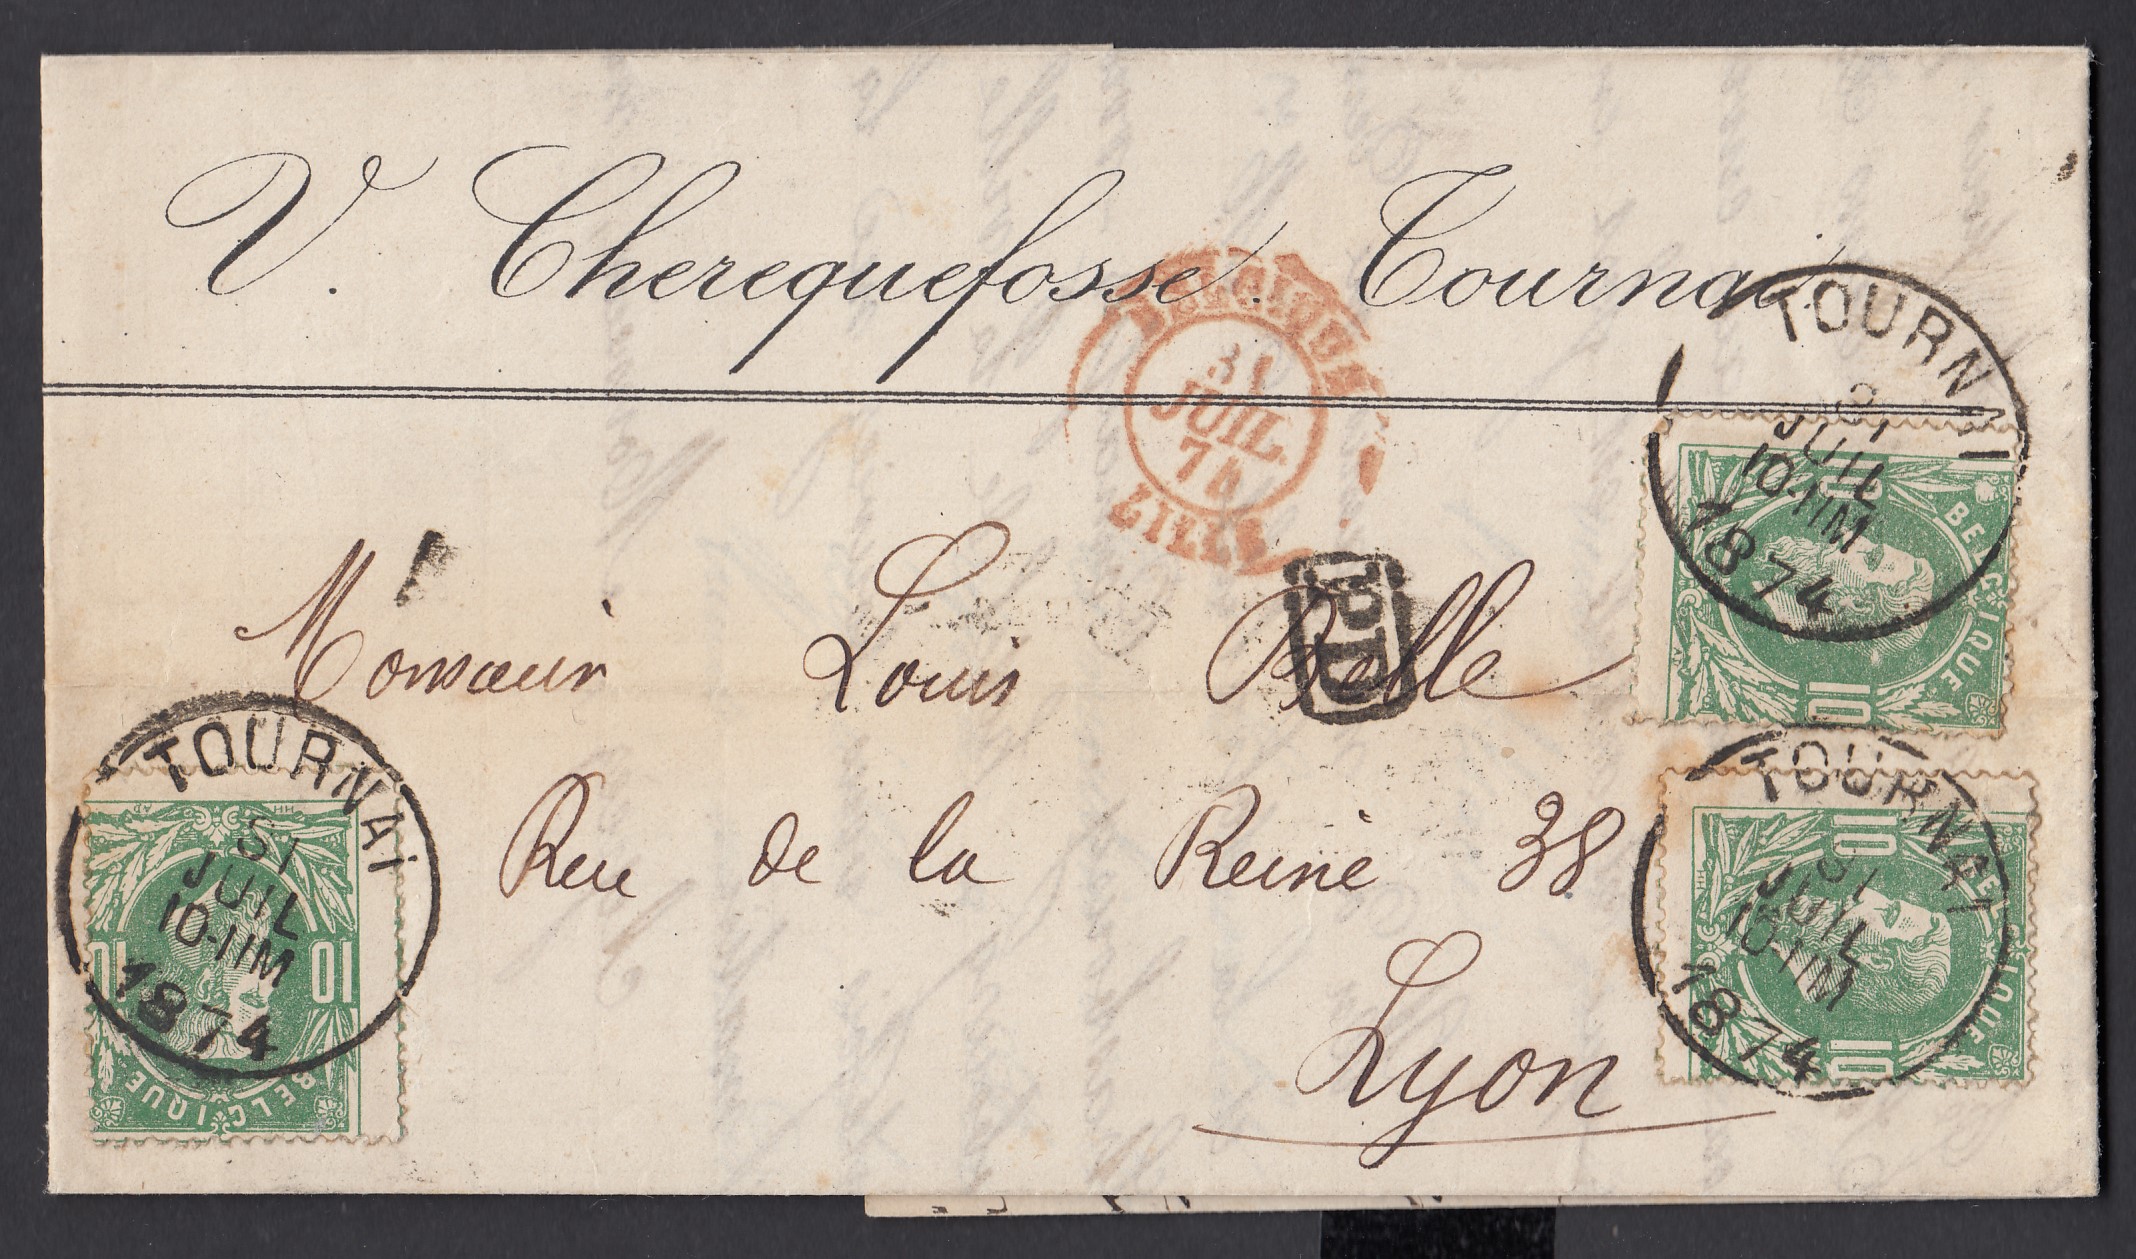 V. Cherequefosse. Tournai.
BELGIQUE
31
JUIL.
74
LILLE
TOURNAI
31
JUIL
10-11M
1874
10
BELGIQUE
10
PD
Monsieur Louis Belle
TOURNAI
31
JUIL
10-11M
1874
10
10
BELGIQUE
Rue de la Reine 38
TOURNAI
31
JUIL
10-11M
1874
10
BELGIQUE
10
Lyon